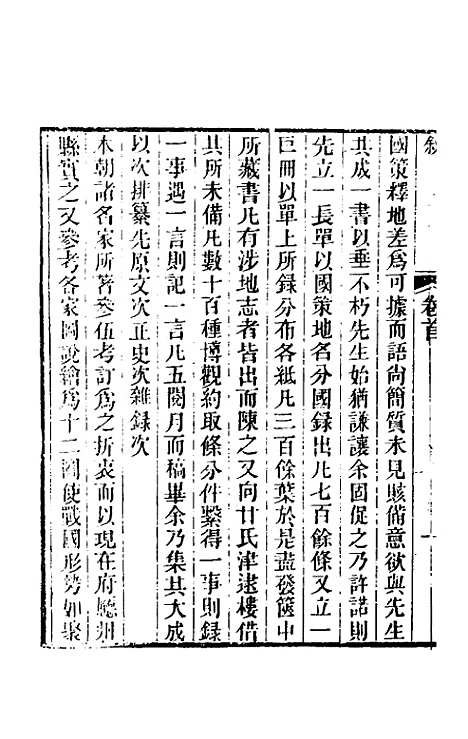 國策釋地差爲可據而語尚簡質未見賅備意欲與先生
共成一書以垂不朽先生始猶謙讓余固促之乃許諾則
先立一長單以國策地名分國錄出凡七百餘條又立一
巨冊以單上所錄分布各紙凡三百餘葉於是盡發篋中
所藏書凡有涉地志者皆出而陳之又向甘氏津逮樓借
其所未備凡數十百種博觀約取條分件繫得一事則錄
一事遇一言則記一言凡五閱月而稿畢余乃集其大成
以次排纂先原文次正史次雜錄次
本朝諸名家所著參伍考訂爲之折衷而以現在府廳州
縣實之又參考各家圖說繪爲十二圖使戰國形勢如聚
卷首